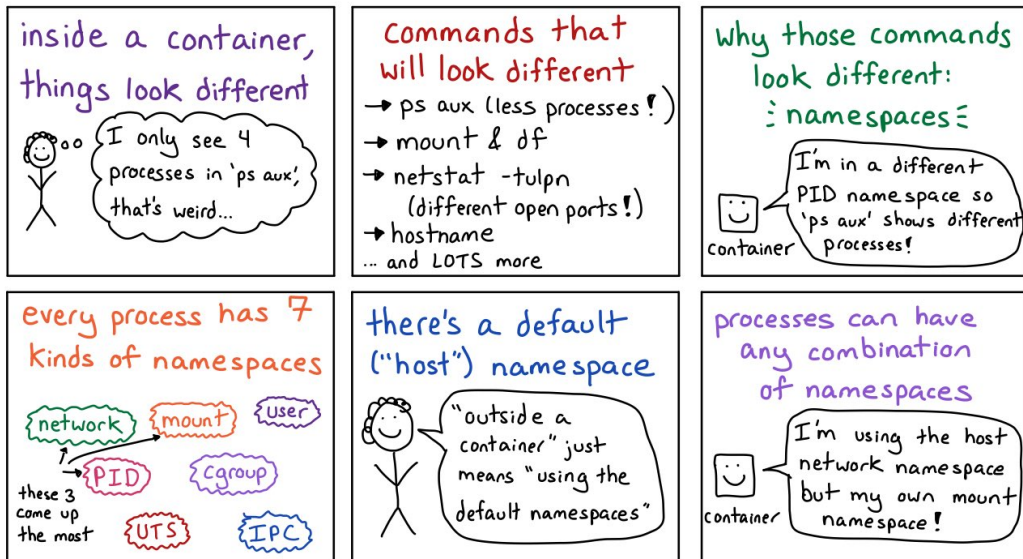 inside a container,
things look different
I only see 4
processes in 'ps aux',
that's weird...
Commands that
will look different
→ ps aux (less processes!)
→ mount & df
→ netstat -tulpn
(different open ports!)
→ hostname
... and LOTS more
why those commands
look different:
namespaces
I'm in a different
PID namespace so
'ps aux' shows different
processes!
container
every process has 7
kinds of namespaces
network
mount
user
PID
cgroup
these 3
come up
the most
UTS
IPC
there's a default
("host") namespace
"outside a
container" just
means "using the
default namespaces"
processes can have
any combination
of namespaces
I'm using the host
network namespace
but my own mount
namespace!
container